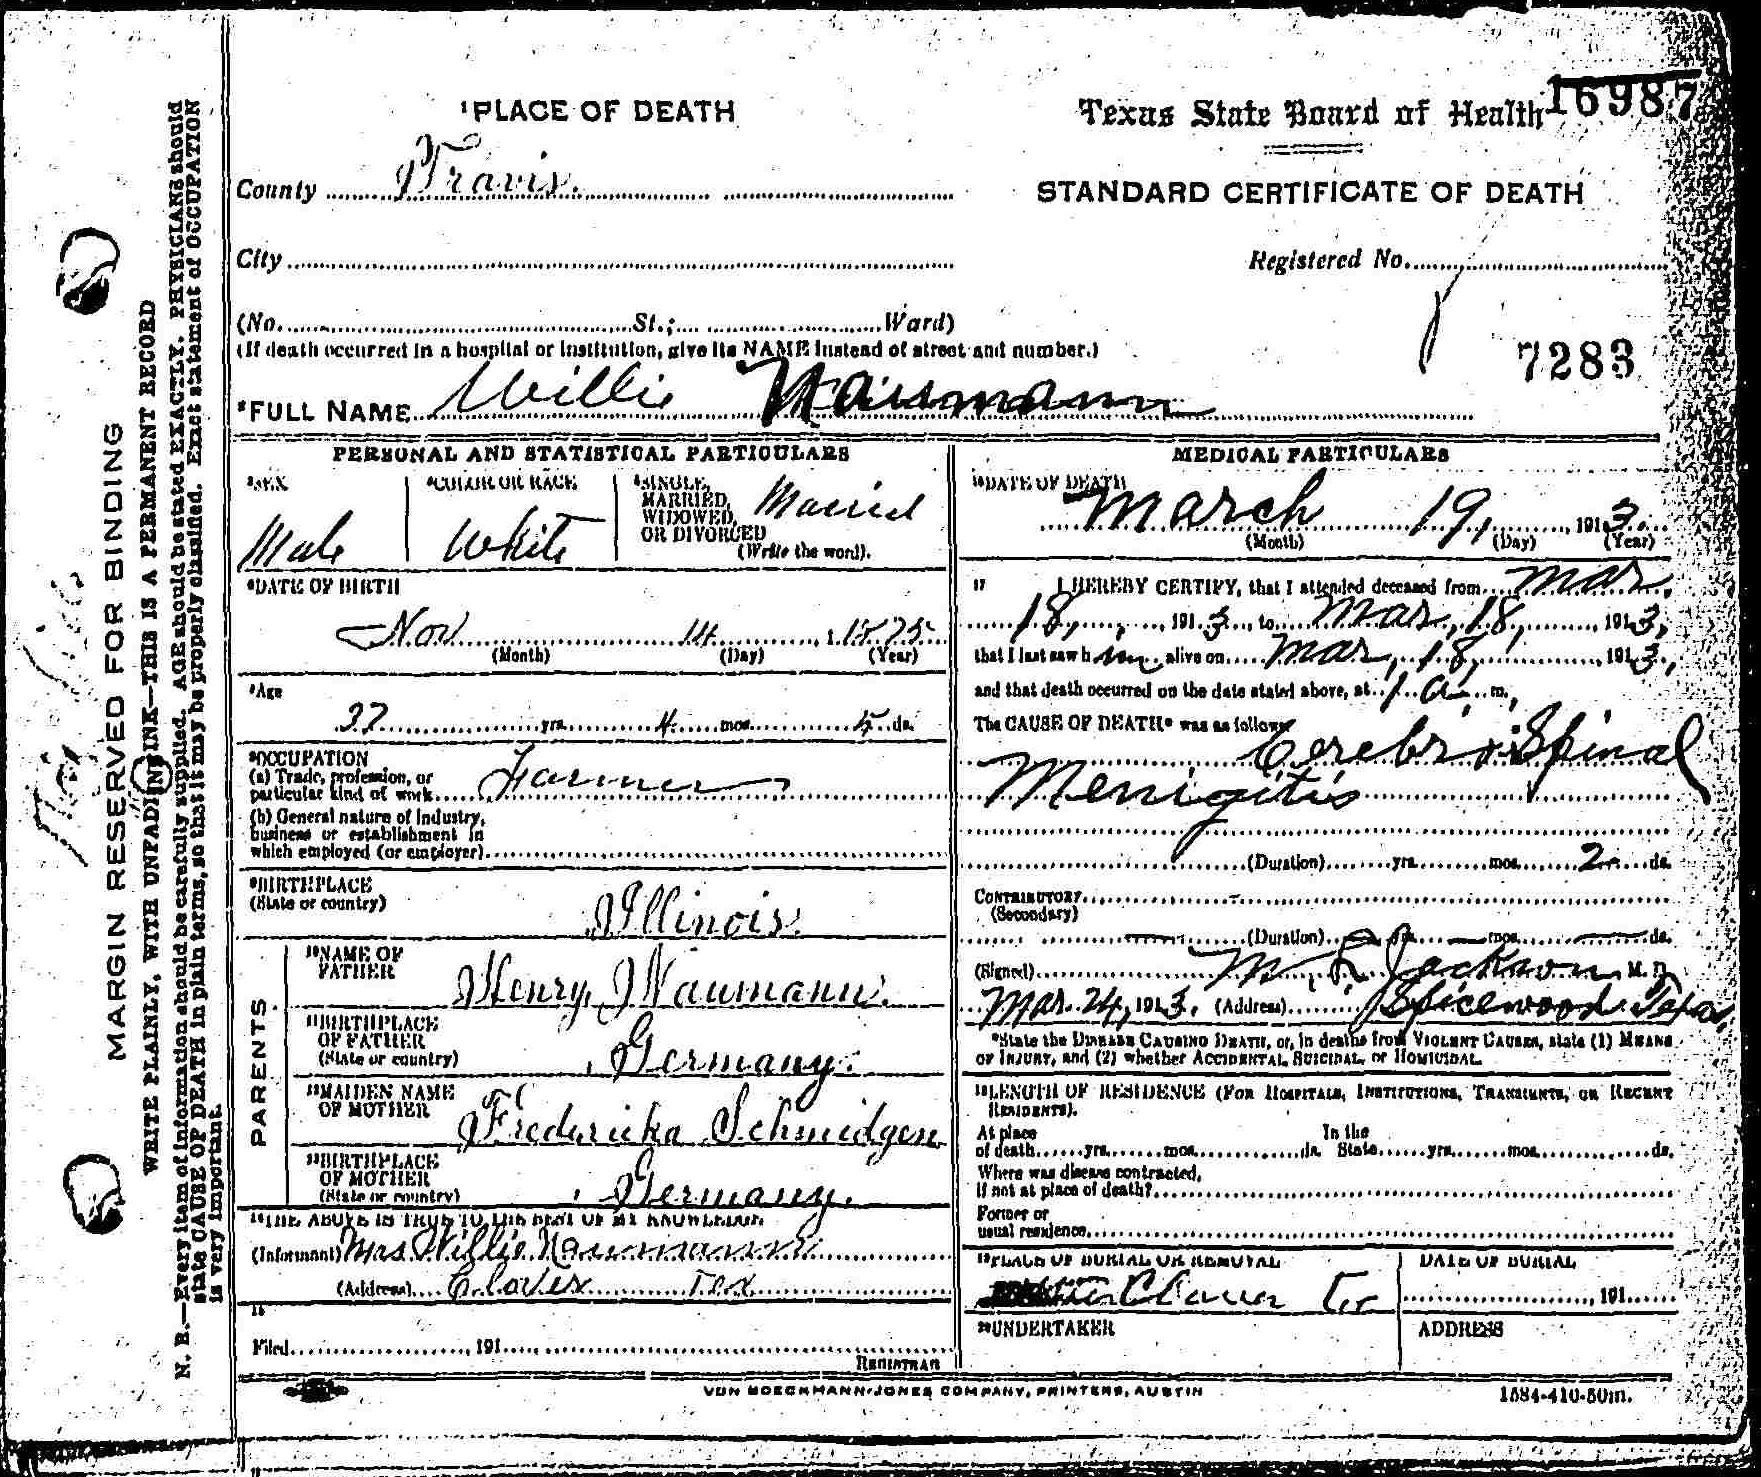 16987
¹PLACE OF DEATH
Texas State Board of Health
County Travis.
STANDARD CERTIFICATE OF DEATH
City
Registered No.
(No. St.; Ward)
(If death occurred in a hospital or institution, give its NAME instead of street and number.)
7283
²FULL NAME Willie Naumann
PERSONAL AND STATISTICAL PARTICULARS
³SEX
Male
⁴COLOR OR RACE
White
⁵SINGLE,
MARRIED,
WIDOWED,
OR DIVORCED
(Write the word).
Married
⁶DATE OF BIRTH
Nov 14, 1875
(Month) (Day) (Year)
⁷Age
37 yrs. 4 mos. 5 ds.
⁸OCCUPATION
(a) Trade, profession, or
particular kind of work Farmer
(b) General nature of industry,
business or establishment in
which employed (or employer)
⁹BIRTHPLACE
(State or country)
Illinois.
PARENTS
¹⁰NAME OF
FATHER
Henry Naumann.
¹¹BIRTHPLACE
OF FATHER
(State or country)
Germany.
¹²MAIDEN NAME
OF MOTHER
Frederieka Schmidgen
¹³BIRTHPLACE
OF MOTHER
(State or country)
Germany.
¹⁴THE ABOVE IS TRUE TO THE BEST OF MY KNOWLEDGE
(Informant) Mrs. Willie Naumann
(Address) Clover Tex
15
Filed 191
REGISTRAR
MEDICAL PARTICULARS
¹⁶DATE OF DEATH
March 19, 1913.
(Month) (Day) (Year)
17 I HEREBY CERTIFY, that I attended deceased from Mar.
18, 1913, to Mar, 18, 1913,
that I last saw him alive on Mar, 18, 1913,
and that death occurred on the date stated above, at 1 a. m.,
The CAUSE OF DEATH* was as follows:
Cerebro Spinal
Menigitis
(Duration) yrs. mos. 2 ds.
CONTRIBUTORY
(Secondary)
(Duration) yrs. mos. ds.
(Signed) Jackson M. D.
Mar. 24, 1913. (Address) Spicewood Texas,
*State the DISEASE CAUSING DEATH, or, in deaths from VIOLENT CAUSES, state (1) MEANS
OF INJURY, and (2) whether ACCIDENTAL, SUICIDAL, or HOMICIDAL.
¹⁸LENGTH OF RESIDENCE (FOR HOSPITALS, INSTITUTIONS, TRANSIENTS, OR RECENT
RESIDENTS).
At place In the
of death yrs. mos. ds. State yrs. mos. ds.
Where was disease contracted,
if not at place of death?
Former or
usual residence
¹⁹PLACE OF BURIAL OR REMOVAL
Clover Tex
DATE OF BURIAL
191
²⁰UNDERTAKER
ADDRESS
VON BOECKMANN-JONES COMPANY, PRINTERS, AUSTIN
1584-410-50m.
MARGIN RESERVED FOR BINDING
WRITE PLAINLY, WITH UNFADING INK—THIS IS A PERMANENT RECORD
N. B.—Every item of information should be carefully supplied. AGE should be stated EXACTLY. PHYSICIANS should
state CAUSE OF DEATH in plain terms, so that it may be properly classified. Exact statement of OCCUPATION
is very important.